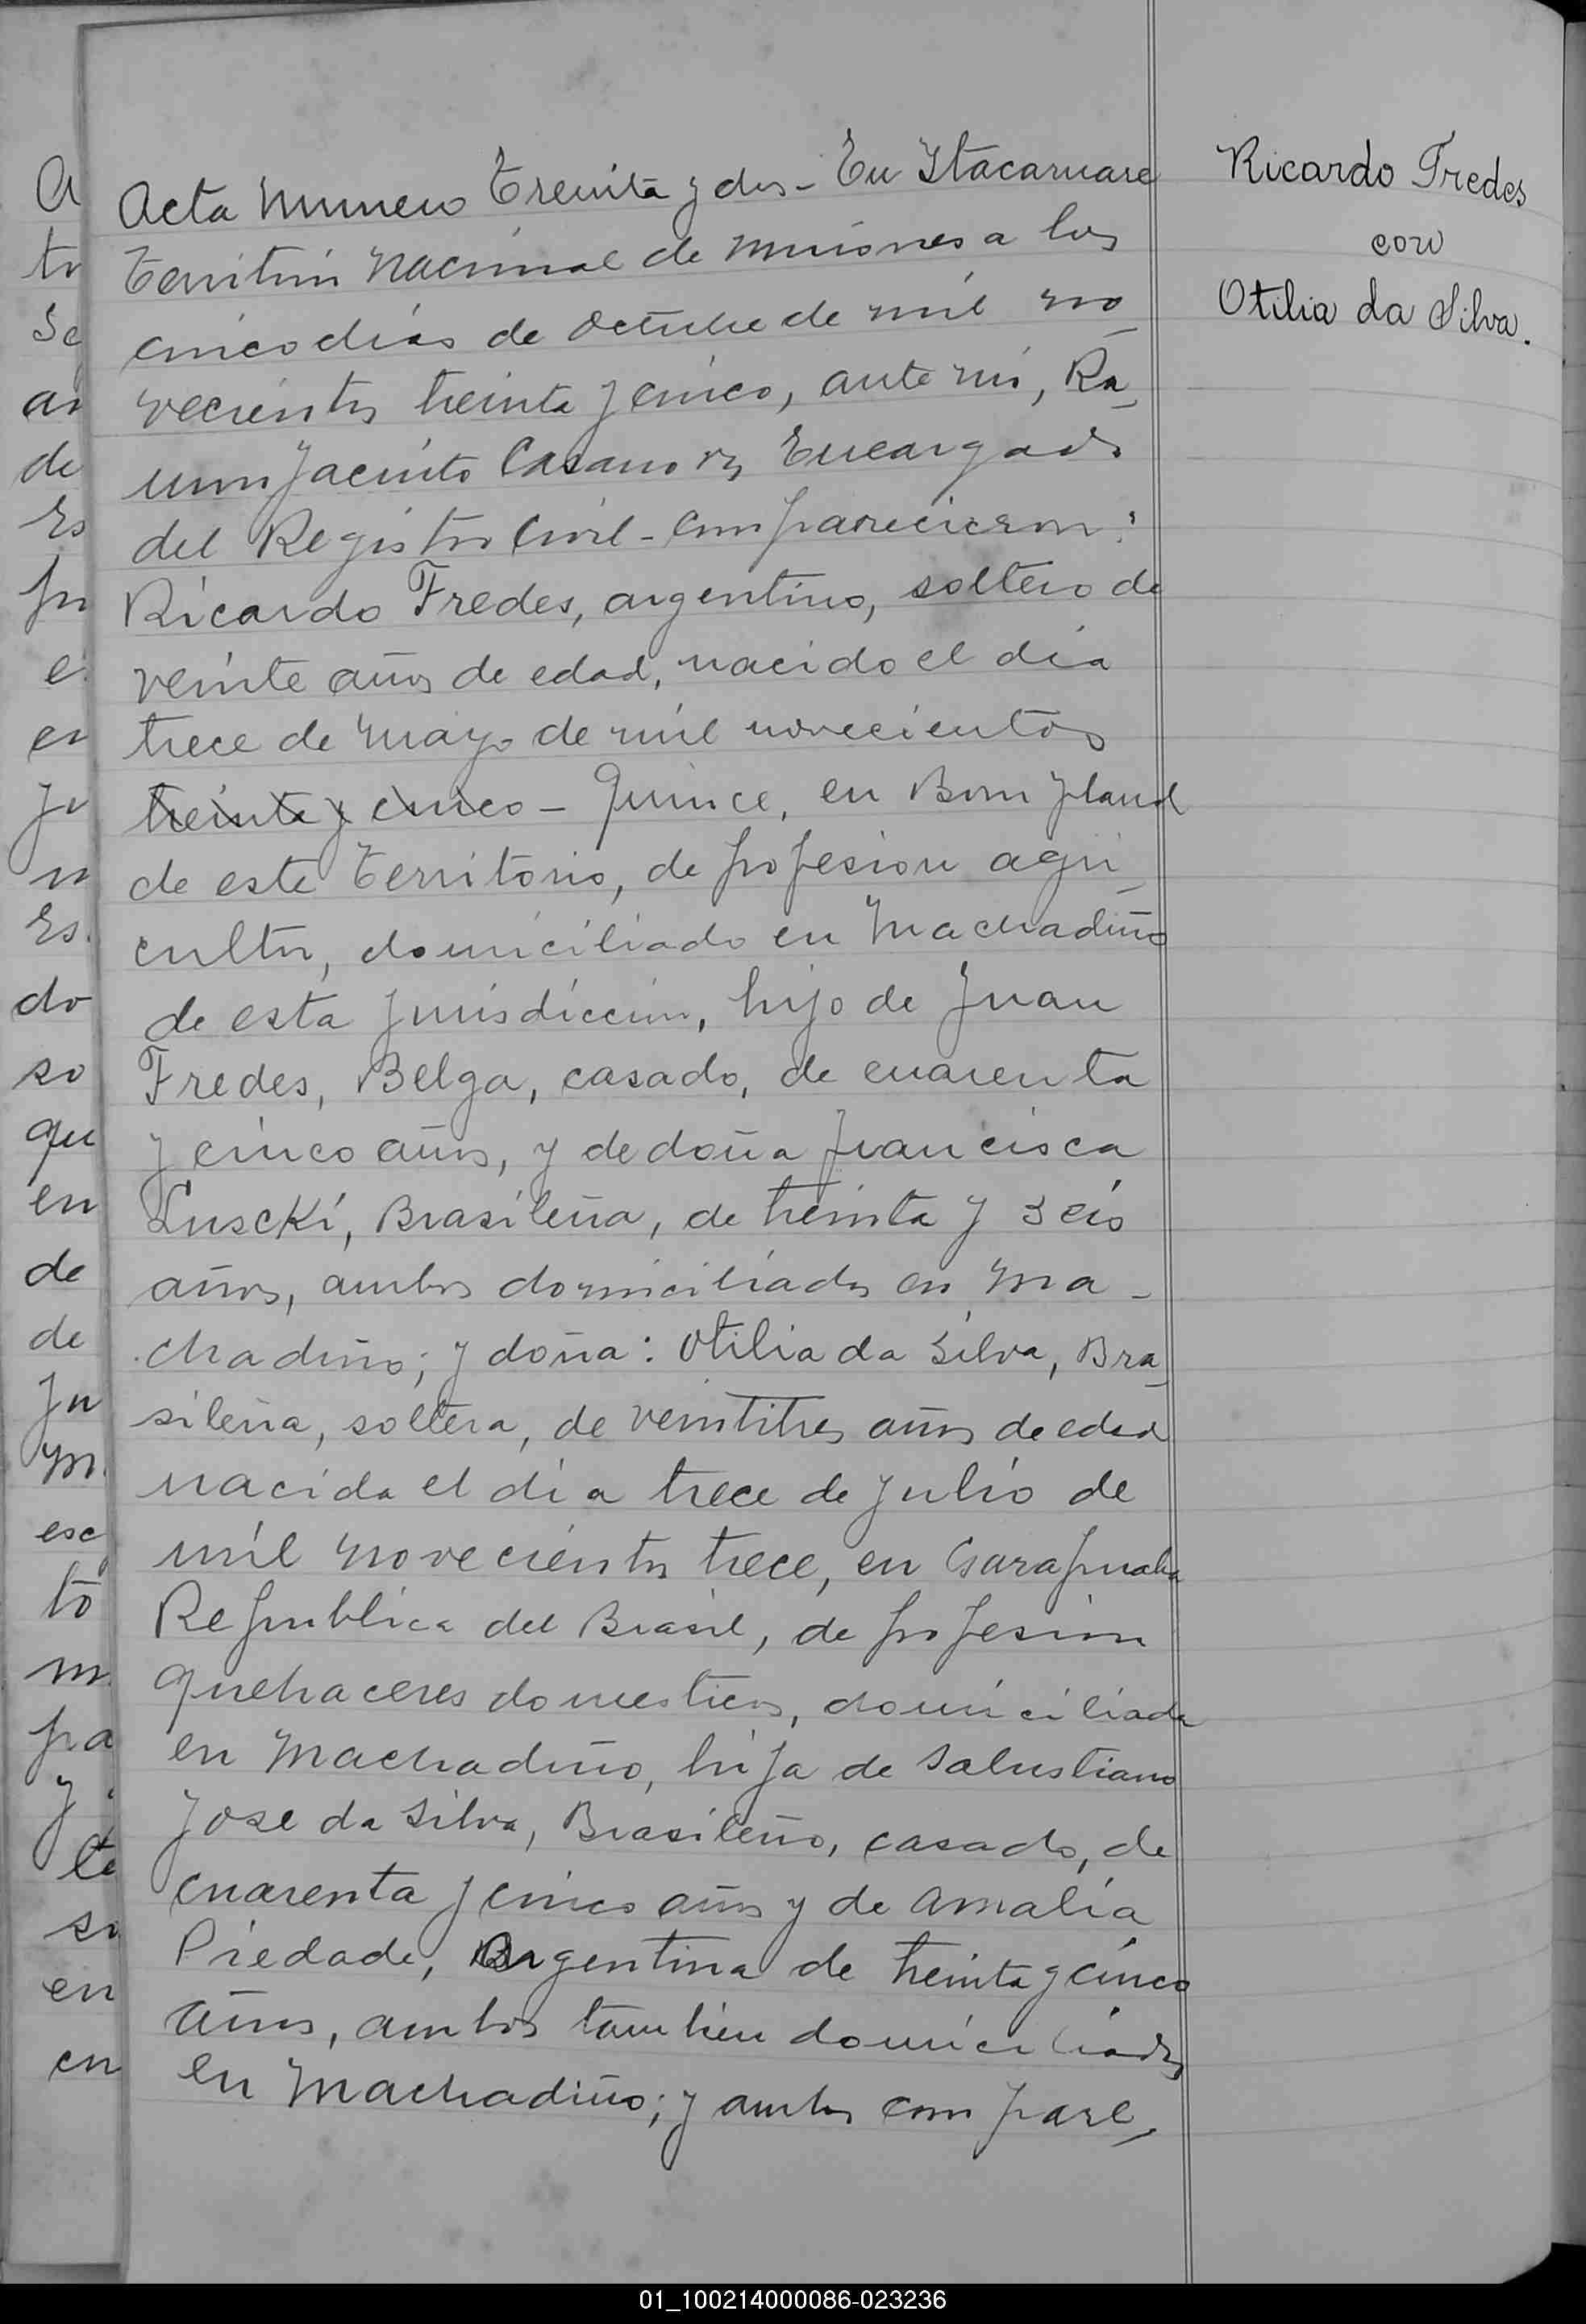 Acta Numero Treinta y dos - En Itacaruare
Territorio Nacional de Misiones a los
cinco dias de Octubre de mil no_
vecientos treinta y cinco, ante mi, Ra_
mon Jacinto Casanova, Encargado
del Registro Civil - Comparecieron:
Ricardo Fredes, argentino, soltero de
veinte años de edad, nacido el dia
trece de Mayo de mil novecientos
treinta y cinco - quince, en Bompland
de este Territorio, de profesion agri_
cultor, domiciliado en Machadiño
de esta jurisdiccion, hijo de Juan
Fredes, Belga, casado, de cuarenta
y cinco años, y de doña Francisca
Luscki, Brasileña, de treinta y seis
años, ambos domiciliados en Ma_
chadiño; y doña: Otilia da Silva, Bra_
sileña, soltera, de veintitres años de edad
nacida el dia trece de Julio de
mil novecientos trece, en
Republica del Brasil, de profesion
quehaceres domesticos, domiciliada
en Machadiño, hija de Salustiano
Jose da Silva, Brasileño, casado, de
cuarenta y cinco años y de Amalia
Piedade, Argentina de treinta y cinco
años, ambos tambien domiciliados
en Machadiño; y ambos compare_
Ricardo Fredes
con
Otilia da Silva.
A
to
Se
an
de
Es
pr
e
en
Ju
n
Es.
do
so
qu
en
de
de
Ju
m
esc
to
m
pa
y
te
si
en
en
01_100214000086-023236